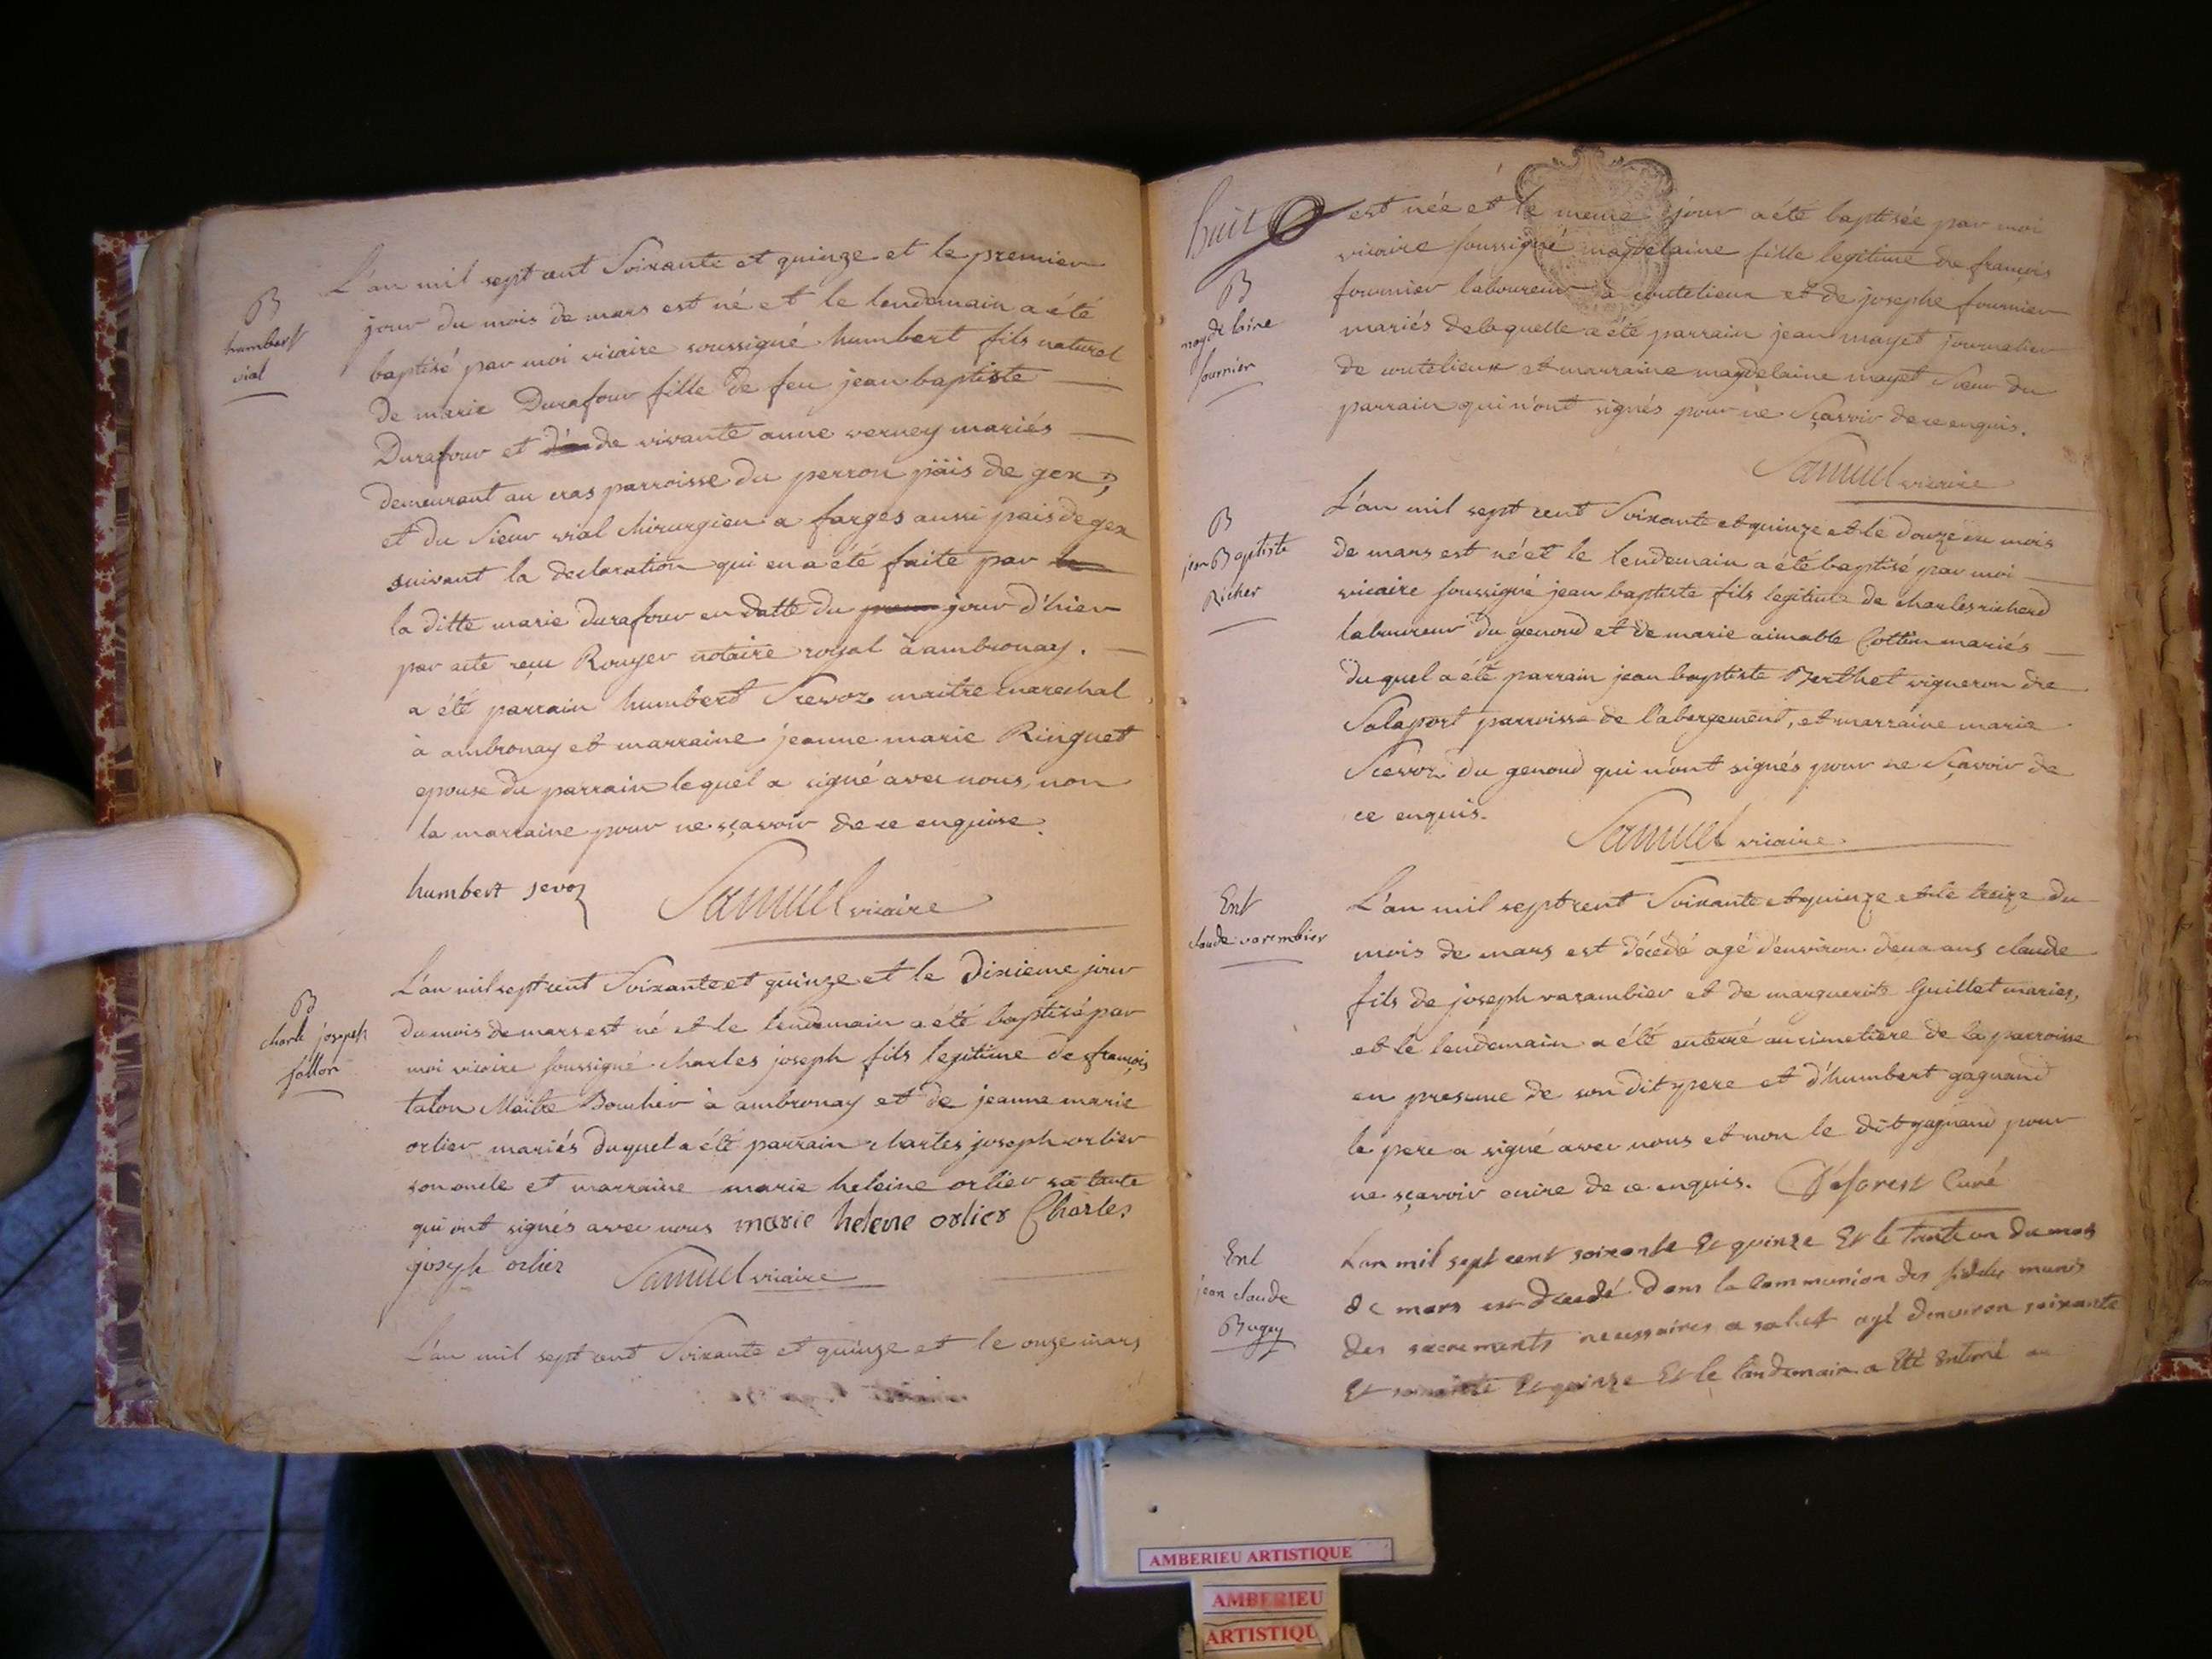 B
humbert
vial
L'an mil sept cent Soixante et quinze et le premier
jour du mois de mars est né et le lendemain a été
baptisé par moi vicaire soussigné humbert fils naturel
de marie Durafour fille de feu jean baptiste
Durafour et de vivante anne verney mariés
demeurant au cras parroisse du perron päis de gex,
et du Sieur vial chirurgien a farges aussi pais de gex
suivant la declaration qui en a été faite par
la ditte marie durafour en datte du jour d'hier
par acte reçu Rouyer notaire royal à ambronay.
a été parrain humbert Scevoz maitre marechal
à ambronay et marraine jeanne marie Ringuet
epouse du parrain lequel a signé avec nous, non
la marraine pour ne sçavoir de ce enquise.
humbert sevoz Samuel vicaire
B
charle joseph
tallon
L'an mil sept cent Soixante et quinze et le dixieme jour
du mois de mars est né et le lendemain a été baptisé par
moi vicaire soussigné charles joseph fils legitime de françois
talon Maitre Boucher à ambronay et de jeanne marie
orlier mariés duquel a été parrain charles joseph orlier
son oncle et marraine marie heleine orlier sa tante
qui ont signés avec nous marie helene orlier Charles
joseph orlier Samuel vicaire
L'an mil sept cent Soixante et quinze et le onze mars
huit
B
magdelaine
fournier
est née et le meme jour a été baptisée par moi
vicaire soussigné magdelaine fille legitime de françois
fournier laboureur à coutelieux et de josephe fournier
mariés de laquelle a été parrain jean mayet journalier
de coutelieux et marraine magdelaine mayet Sœur du
parrain qui n'ont signés pour ne Sçavoir de ce enquis.
Samuel vicaire
B
jean Baptiste
Richer
L'an mil sept cent Soixante et quinze et le douze du mois
de mars est né et le lendemain a été baptisé par moi
vicaire soussigné jean baptiste fils legitime de charles richerd
laboureur du genoud et de marie aimable Cottin mariés
duquel a été parrain jean baptiste Berthet vigneron de
Salaport parroisse de l'abergement, et marraine marie
Scevoz du genoud qui n'ont signés pour ne Sçavoir de
ce enquis.
Samuel vicaire
Ent
claude varembier
L'an mil sept cent Soixante et quinze et le treize du
mois de mars est décédé agé d'environ deux ans claude
fils de joseph varambier et de marguerite Guillet mariés,
et le lendemain a été enterré au cimetière de la parroisse
en presence de son dit pere et d'humbert gagnand
le pere a signé avec nous et non le dit gagnand pour
ne sçavoir ecrire de ce enquis. Deforest Curé
Ent
jean claude
Bugey
L'an mil sept cent soixante Et quinze Et le trente un du mois
de mars est decedé dans la Communion des fideles munis
des sacrements necessaires a salut agé denviron soixante
Et Et quinze Et le landemain a été Enterré au
AMBERIEU ARTISTIQUE
AMBERIEU
ARTISTIQU